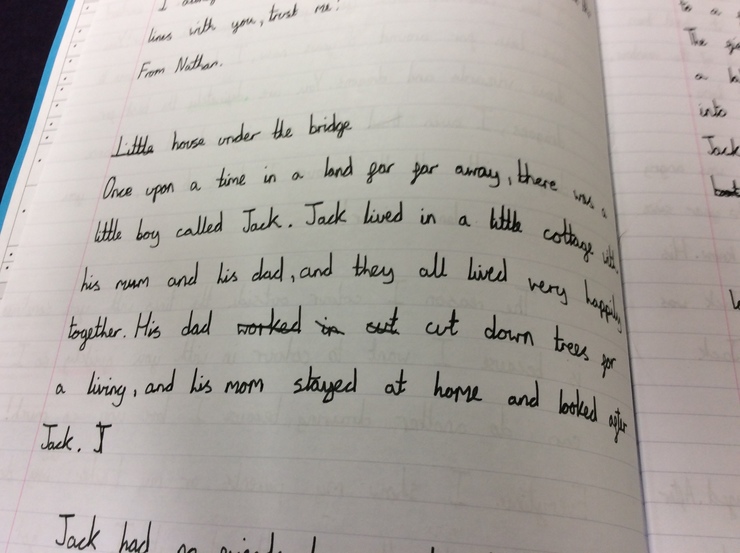 lines with you, trust me!
From Nathan.
Little house under the bridge
Once upon a time in a land far far away, there was a
little boy called Jack. Jack lived in a little cottage with
his mum and his dad, and they all lived very happily
together. His dad worked in cut cut down trees for
a living, and his mom stayed at home and looked after
Jack. I
Jack had no
to a
The
a
into
Jack